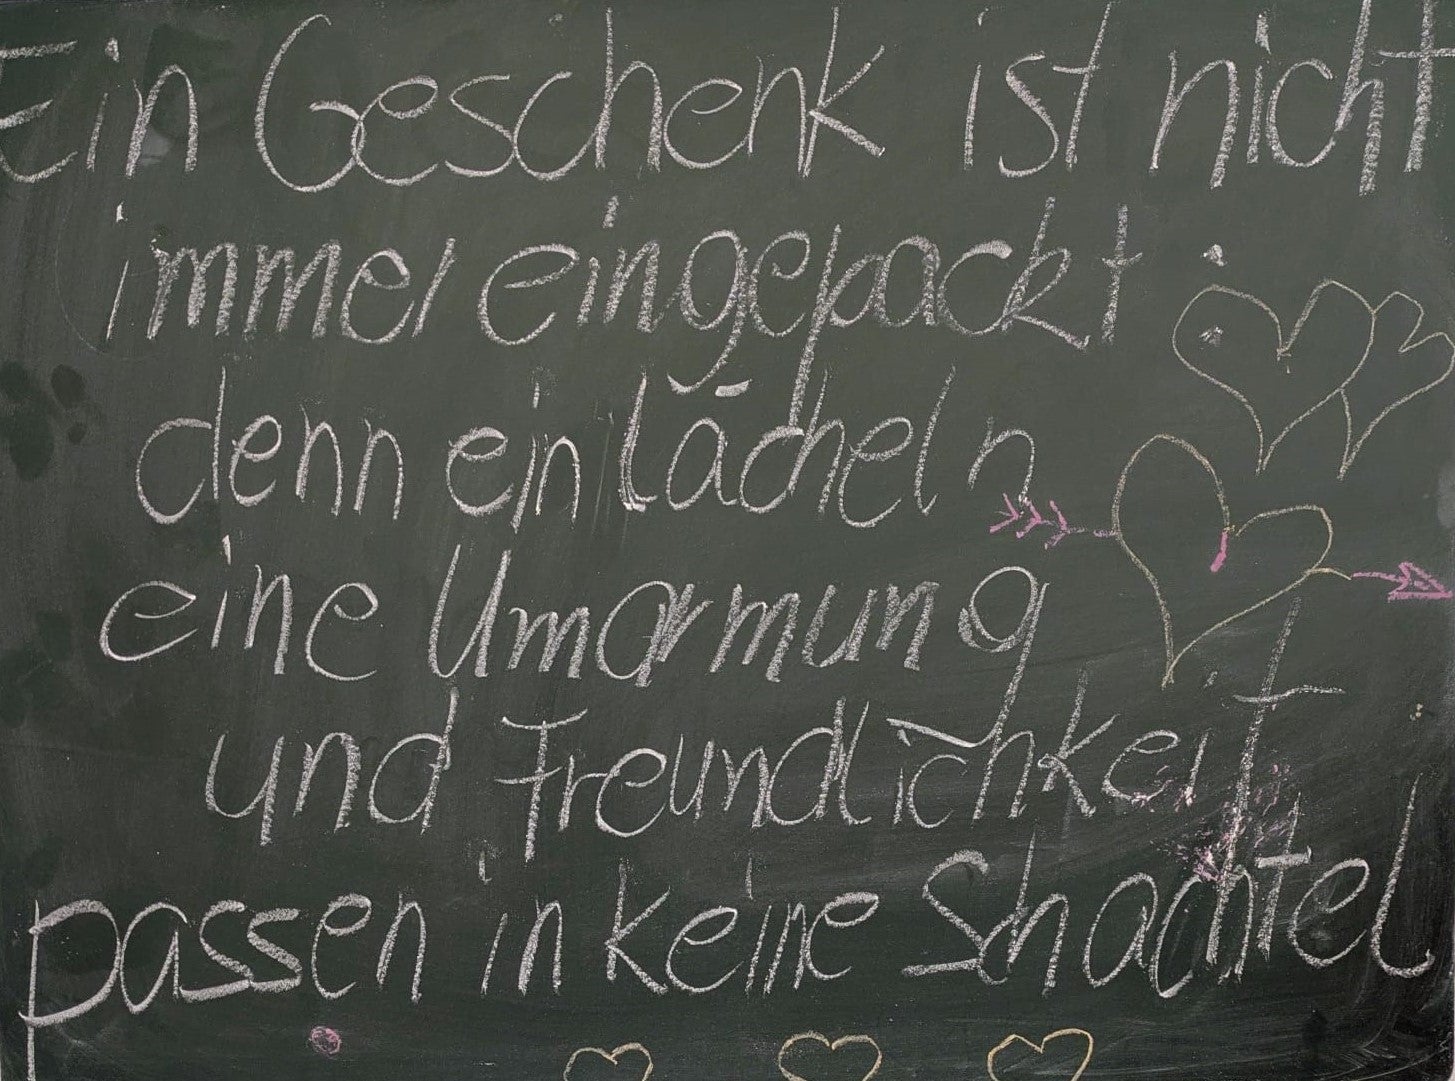 Ein Geschenk ist nicht
immer eingepackt
denn ein lächeln
eine Umarmung
und Freundlichkeit
passen in keine Schachtel